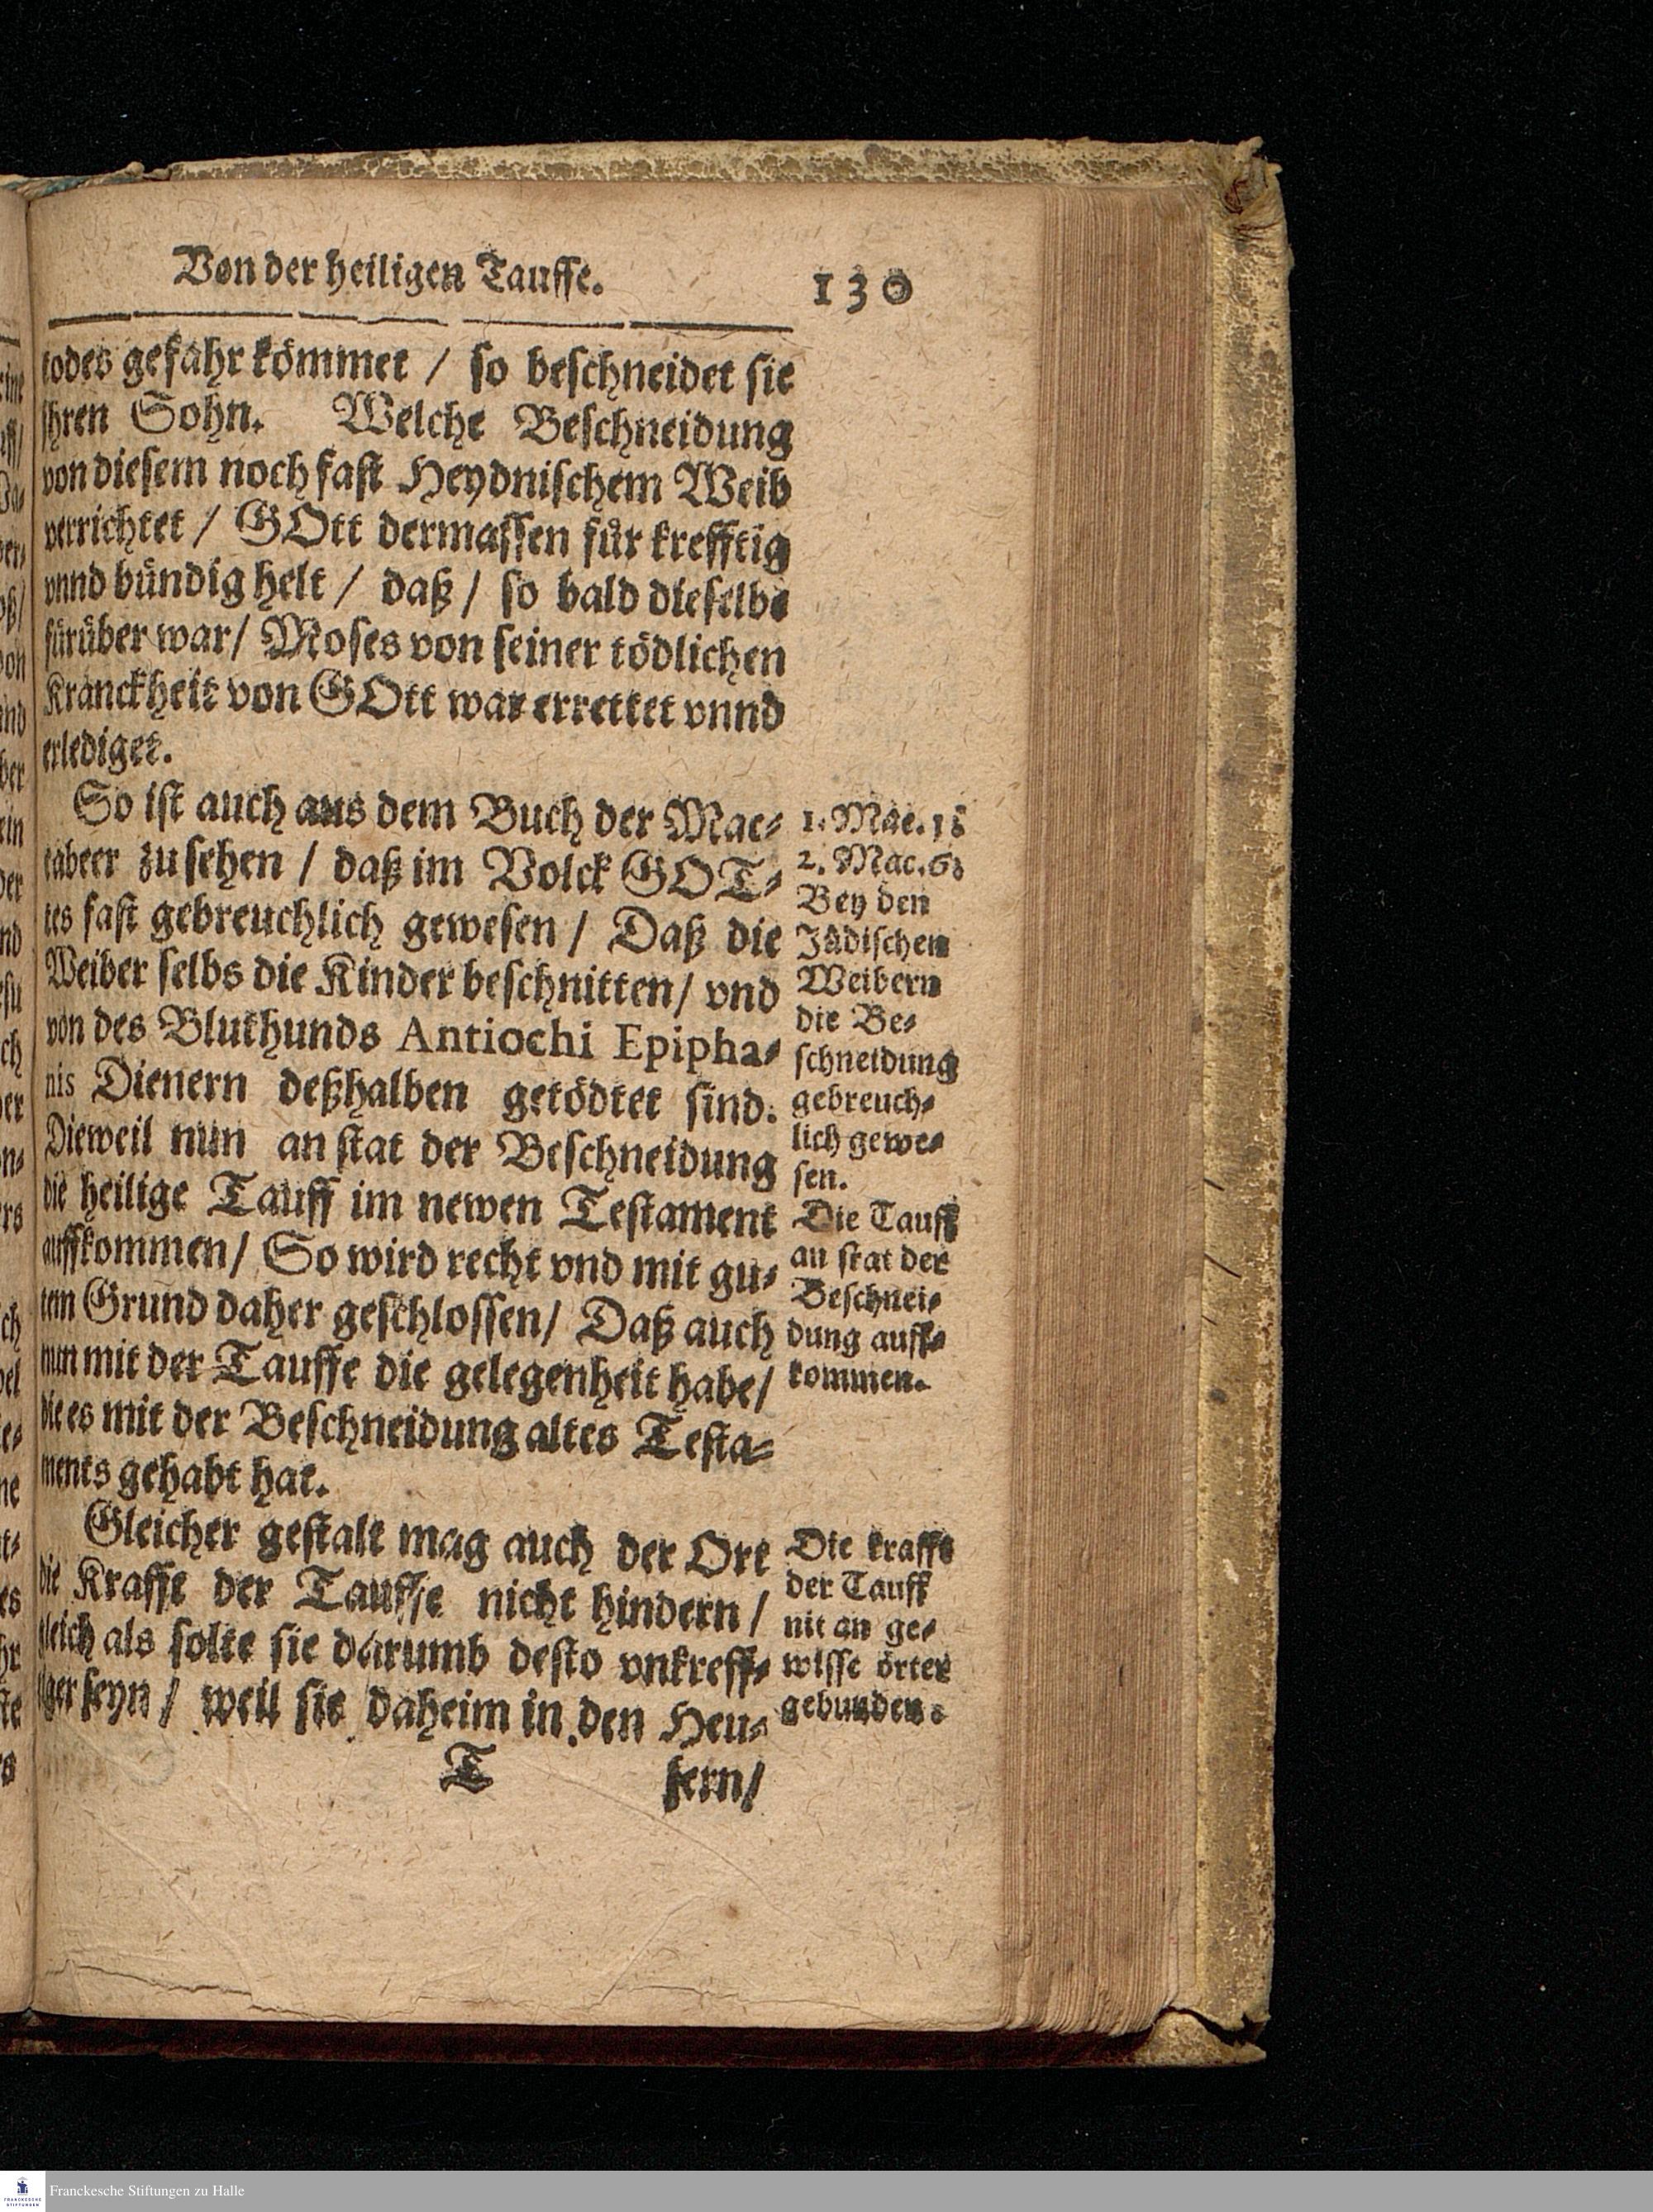 Von der heiligen Tauffe.
130
todes gefahr kömmet / so beschneidet sie
jhren Sohn. Welche Beschneidung
von diesem noch fast Heydnischem Weib
verrichtet / GOtt dermassen für krefftig
vnnd bündig helt / daß / so bald dieselbe
fürüber war / Moses von seiner tödlichen
Kranckheit von GOtt war errettet vnnd
erlediget.
So ist auch aus dem Buch der Mac-
cabeer zu sehen / daß im Volck GOT-
tes fast gebreuchlich gewesen / Daß die
Weiber selbs die Kinder beschnitten / vnd
von des Bluthunds Antiochi Epipha-
nis Dienern deßhalben getödtet sind.
Dieweil nun an stat der Beschneidung
die heilige Tauff im newen Testament
auffkommen / So wird recht vnd mit gu-
tem Grund daher geschlossen / Daß auch
nun mit der Tauffe die gelegenheit habe /
die es mit der Beschneidung altes Testa-
ments gehabt hat.
Gleicher gestalt mag auch der Ort
die Krafft der Tauffe nicht hindern /
gleich als solte sie darumb desto vnkreff-
tiger seyn / weil sie daheim in den Heu-
T
sern /
1. Mac.
2. Mac. 6.
Bey den
Jüdischen
Weibern
die Be-
schneidung
gebreuch-
lich gewe-
sen.
Die Tauff
an stat der
Beschnei-
dung auff-
kommen.
Die krafft
der Tauff
nit an ge-
wisse örter
gebunden.
Franckesche Stiftungen zu Halle
FRANCKESCHE
STIFTUNGEN